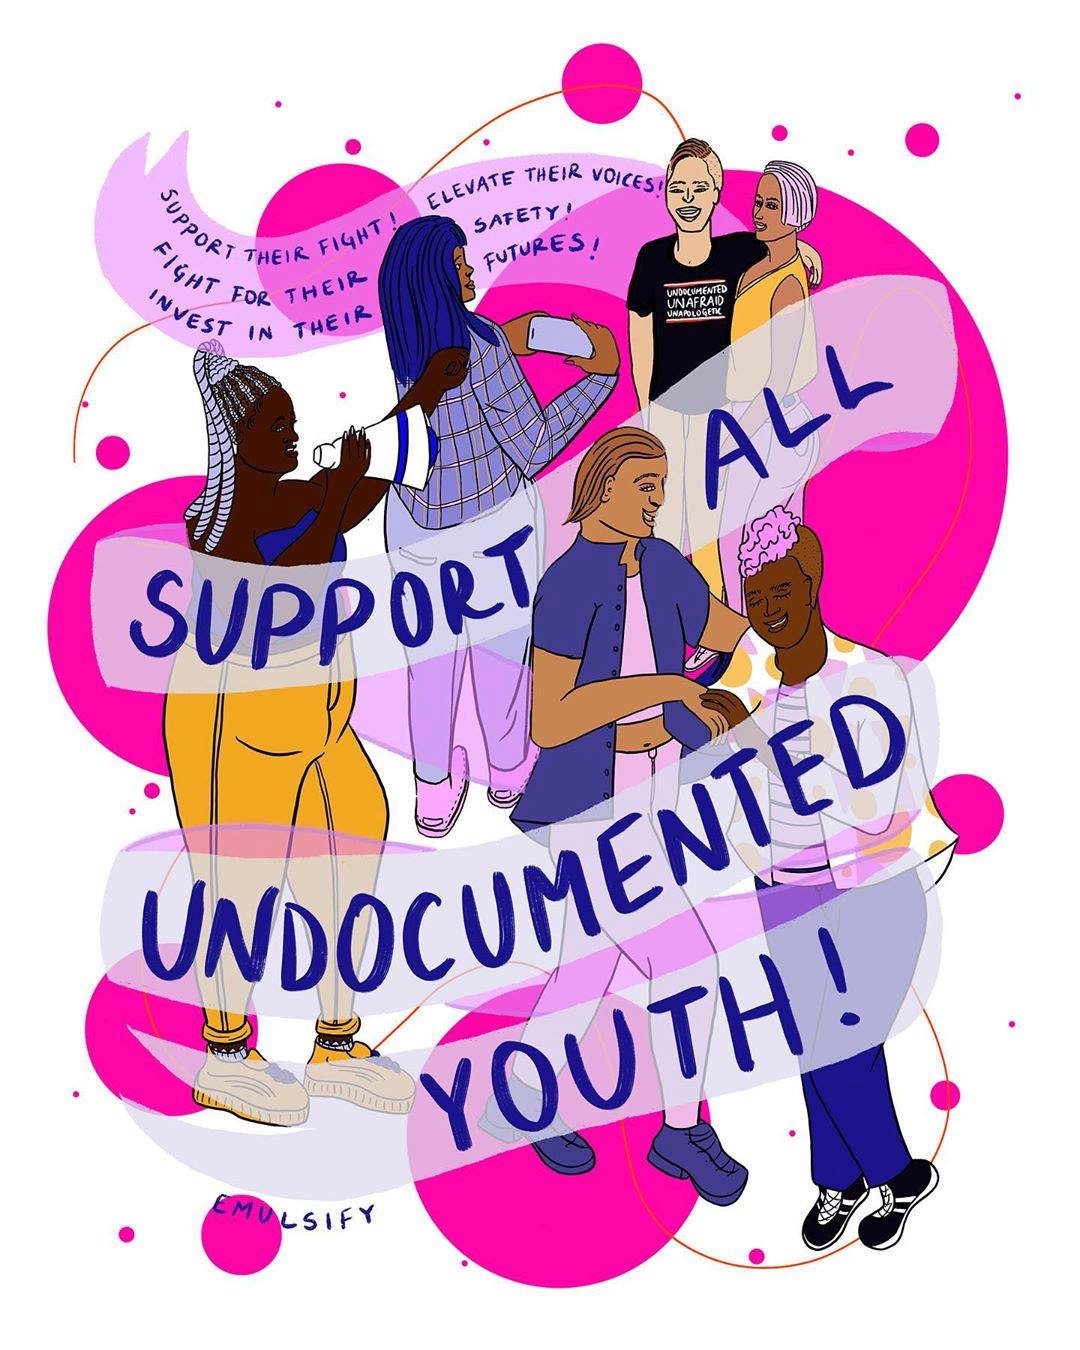 SUPPORT THEIR FIGHT! ELEVATE THEIR VOICES!
FIGHT FOR THEIR SAFETY!
INVEST IN THEIR FUTURES!
UNDOCUMENTED
UNAFRAID
UNAPOLOGETIC
SUPPORT ALL
UNDOCUMENTED
YOUTH!
EMULSIFY